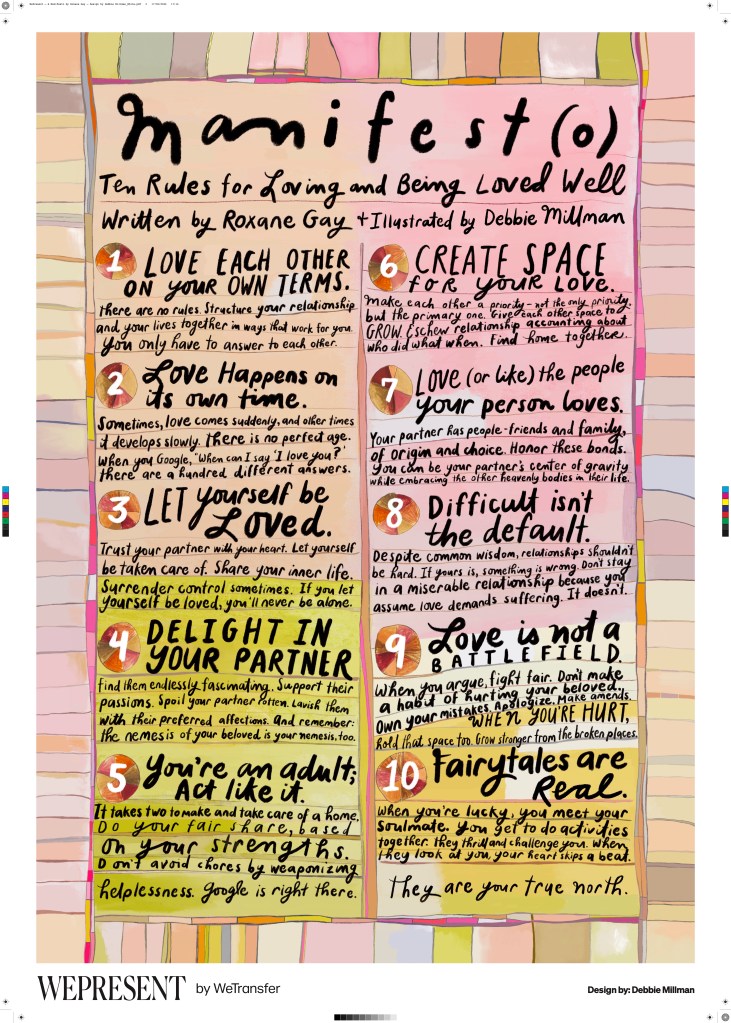 Manifest(o)
Ten Rules for Loving and Being Loved Well
Written by Roxane Gay + Illustrated by Debbie Millman
1 LOVE EACH OTHER
ON YOUR OWN TERMS.
There are no rules. Structure your relationship
and your lives together in ways that work for you.
You only have to answer to each other.
2 Love Happens on
its own time.
Sometimes, love comes suddenly, and other times
it develops slowly. There is no perfect age.
When you Google, "When can I say 'I love you?'
there are a hundred different answers.
3 LET yourself be
Loved.
Trust your partner with your heart. Let yourself
be taken care of. Share your inner life.
Surrender control sometimes. If you let
yourself be loved, you'll never be alone.
4 DELIGHT IN
YOUR PARTNER
Find them endlessly fascinating. Support their
passions. Spoil your partner rotten. Lavish them
with their preferred affections. And remember:
the nemesis of your beloved is your nemesis, too.
5 You're an adult;
Act like it.
It takes two to make and take care of a home.
Do your fair share, based
on your strengths.
Don't avoid chores by weaponizing
helplessness. Google is right there.
6 CREATE SPACE
for your Love.
Make each other a priority - not the only priority,
but the primary one. Give each other space to
GROW. Eschew relationship accounting about
who did what when. Find home together.
7 LOVE (or like) the people
your person loves.
Your partner has people - friends and family,
of origin and choice. Honor these bonds.
You can be your partner's center of gravity
while embracing the other heavenly bodies in their life.
8 Difficult isn't
the default.
Despite common wisdom, relationships shouldn't
be hard. If yours is, something is wrong. Don't stay
in a miserable relationship because you
assume love demands suffering. It doesn't.
9 Love is not a
BATTLEFIELD.
When you argue, fight fair. Don't make
a habit of hurting your beloved.
Own your mistakes. Apologize. Make amends.
WHEN YOU'RE HURT,
hold that space too. Grow stronger from the broken places.
10 Fairytales are
Real.
When you're lucky, you meet your
Soulmate. You get to do activities
together. They thrill and challenge you. When
they look at you, your heart skips a beat.
They are your true north.
WEPRESENT by WeTransfer
Design by: Debbie Millman